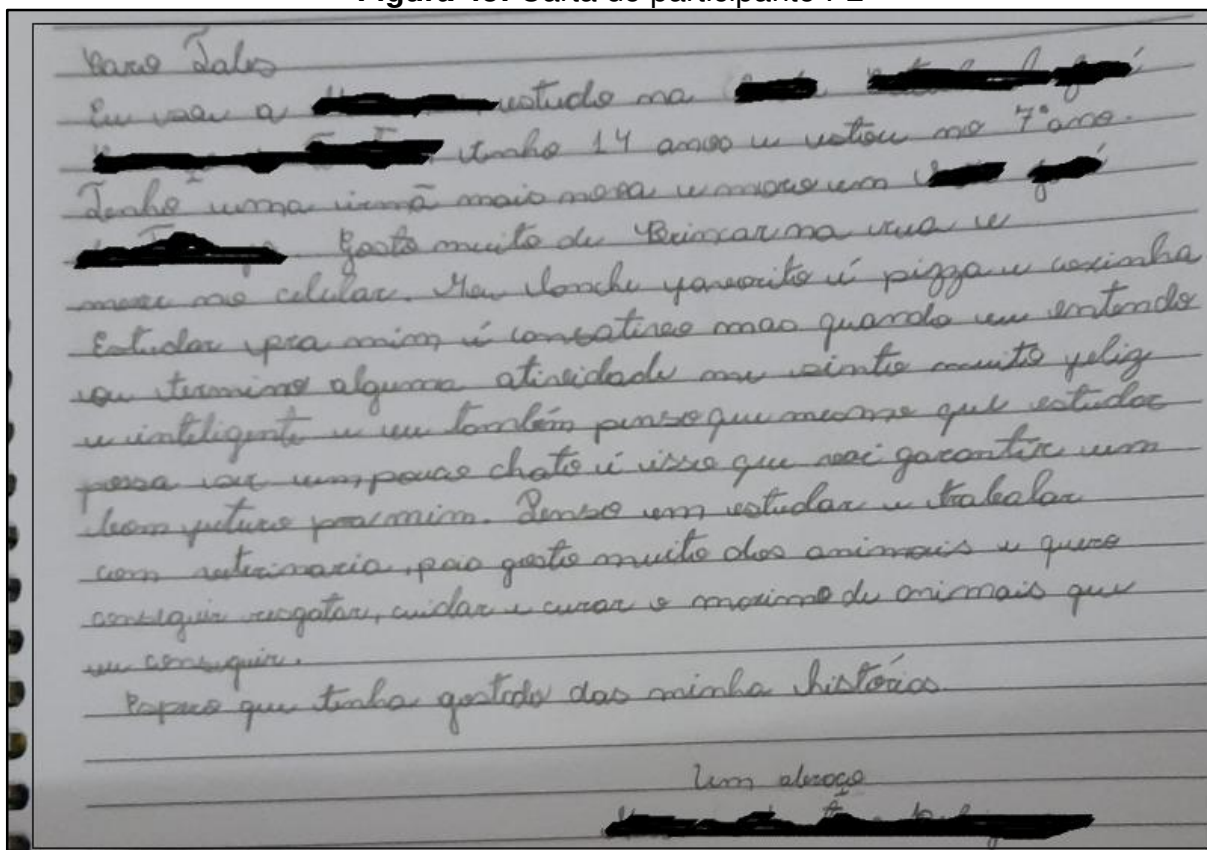 Figura 43: Carta do participante P2
Caro Tales
Eu sou a estudo na
tenho 14 anos e estou no 7° ano.
Tenho uma irmã mais nova e moro em
Gosto muito de Brincar na rua e
mexer no celular. Meu lanche favorito é pizza e coxinha
Estudar pra mim é cansativo mas quando eu entendo
ou termino alguma atividade me sinto muito feliz
e inteligente e eu também penso que mesmo que estudar
possa ser um pouco chato é isso que vai garantir um
bom futuro pra mim. Penso em estudar e trabalar
com veterinaria, pois gosto muito dos animais e quero
conseguir resgatar, cuidar e curar o maximo de animais que
eu conseguir.
Espero que tenha gostado das minha histórias.
Um abraço